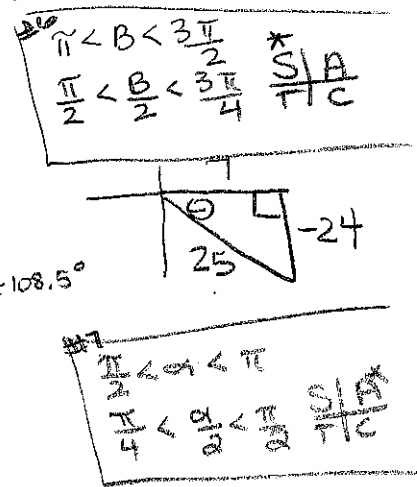 #6
π < B < 3π/2
π/2 < B/2 < 3π/4
*
S | A
T | C
7
Θ
25
-24
108.5°
#7
π/2 < α < π
π/4 < α/2 < π/2
S | A*
T | C